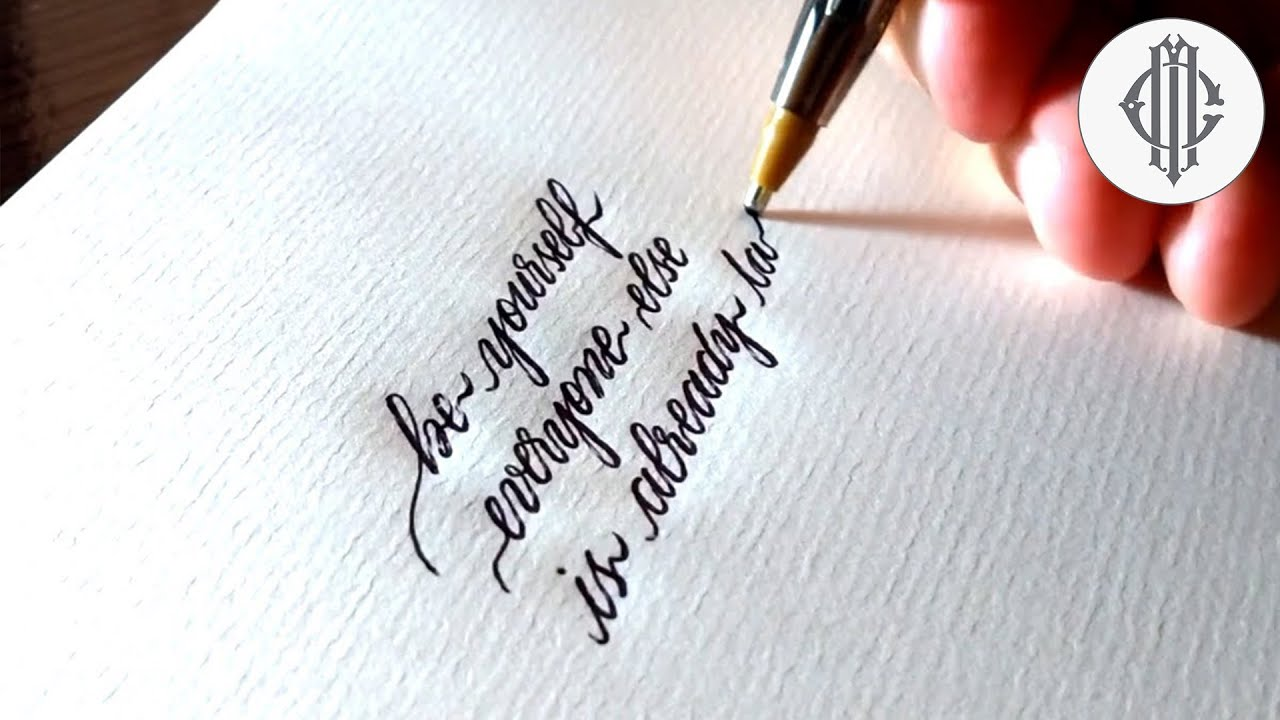 be yourself
everyone else
is already ta